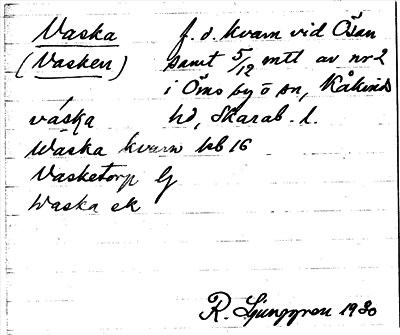 Vaska f. d. kvarn vid Ösan
(Vasken) samt 5/12 mtl av nr 2
i Öms by o sn, Kåkinds
váska hd, Skarab. l.
Waska kvarn hb 16
Vasketorp G
Waska ek
R. Ljunggren 1930